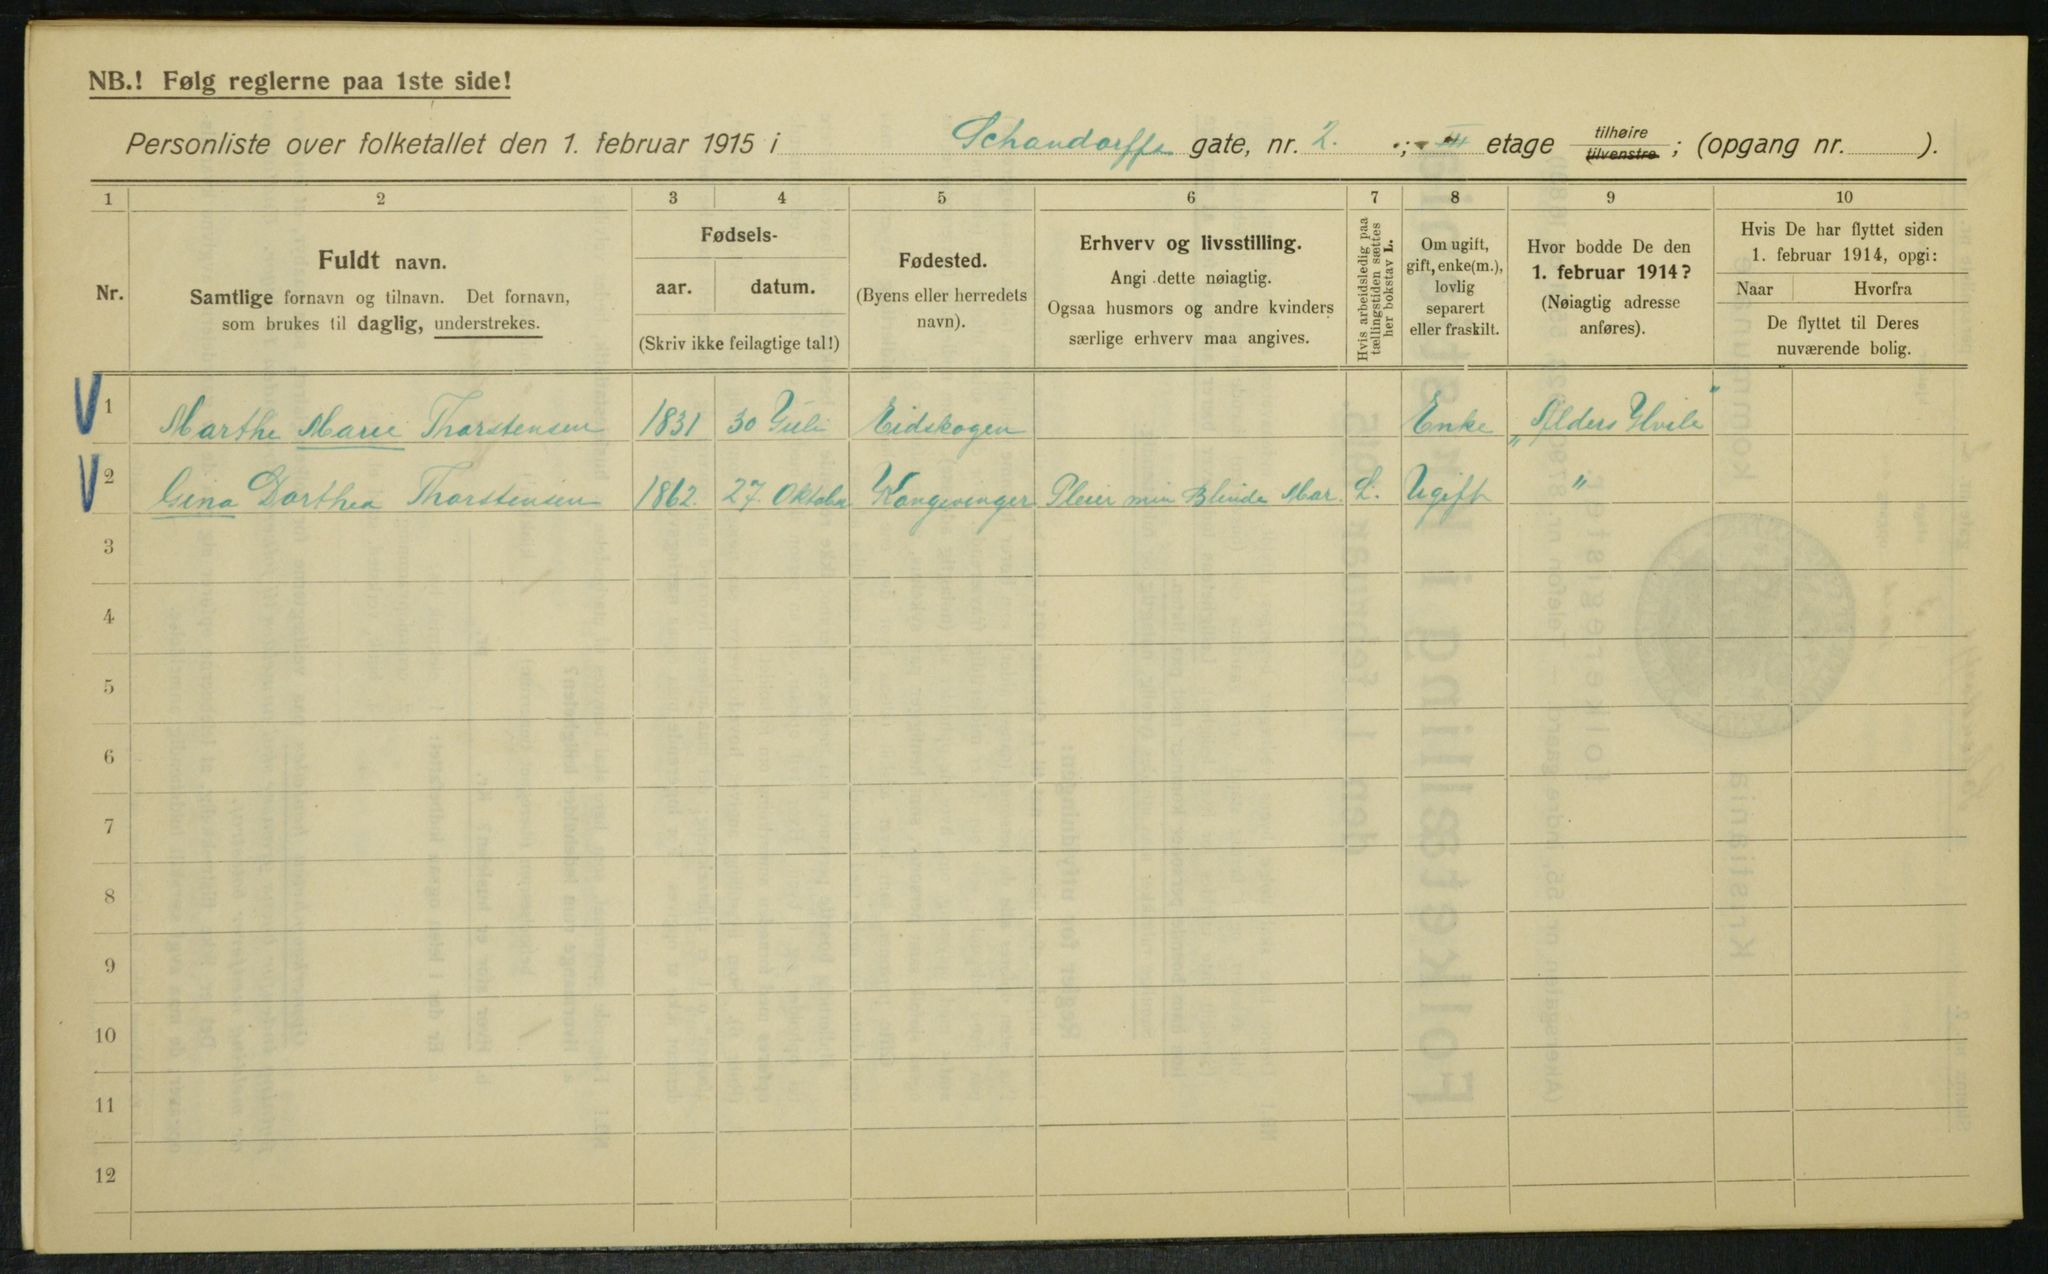 NB.! Følg reglerne paa 1ste side!
Personliste over folketallet den 1. februar 1915 i Schandorffs gate, nr. 2. ; III etage tilhøire tilvenstre ; (opgang nr. ).
1 2 3 4 5 6 7 8 9 10
Nr.
Fuldt navn.
Samtlige fornavn og tilnavn. Det fornavn,
som brukes til daglig, understrekes.
Fødsels-
aar. datum.
(Skriv ikke feilagtige tal!)
Fødested.
(Byens eller herredets
navn).
Erhverv og livsstilling.
Angi dette nøiagtig.
Ogsaa husmors og andre kvinders
særlige erhverv maa angives.
Hvis arbeidsledig paa
tællingstiden sættes
her bokstav L.
Om ugift,
gift, enke(m.),
lovlig
separert
eller fraskilt.
Hvor bodde De den
1. februar 1914?
(Nøiagtig adresse
anføres).
Hvis De har flyttet siden
1. februar 1914, opgi:
Naar Hvorfra
De flyttet til Deres
nuværende bolig.
1 Marthe Marie Thorstensen 1831 30 Juli Eidskogen Enke „Alders Hvile"
2 Gina Dorthea Thorstensen 1862. 27. Oktober Kongsvinger Pleier min Blinde Mor. L. Ugift "
3
4
5
6
7
8
9
10
11
12